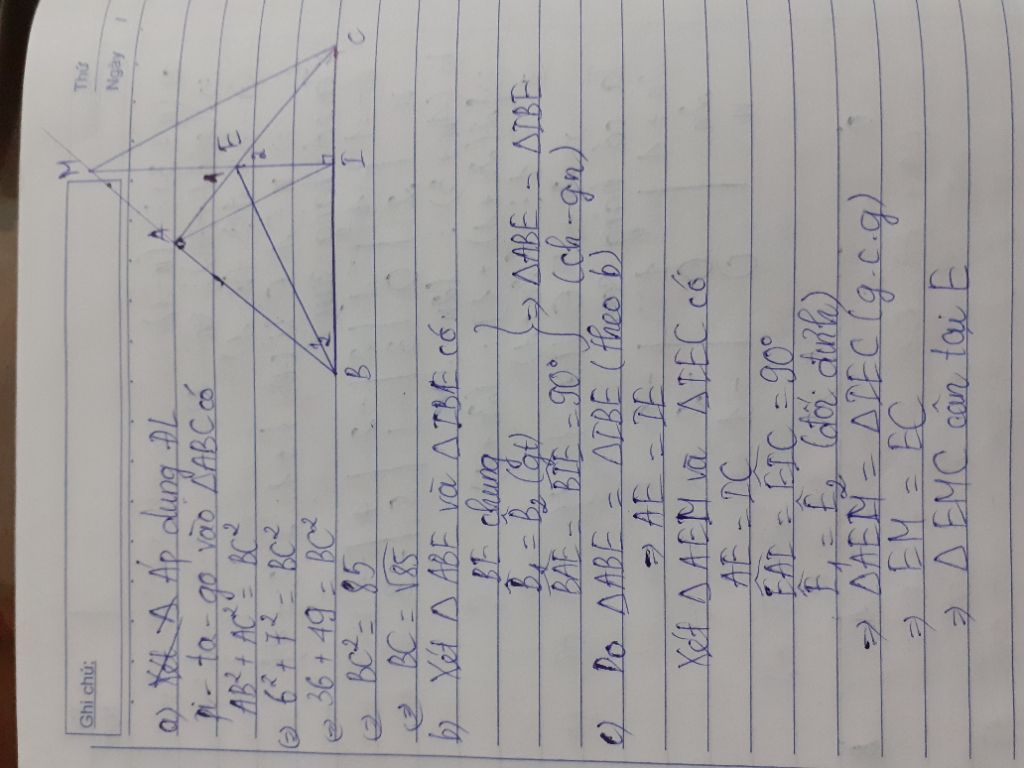 Thứ
Ngày
Ghi chú:
M
A
E
1
2
1
2
B
I
C
a) Xét Δ Áp dụng ĐL
Pi-ta-go vào ΔABC có
AB² + AC² = BC²
(=) 6² + 7² = BC²
(=) 36 + 49 = BC²
(=) BC² = 85
(=) BC = √85
b) Xét Δ ABE và Δ IBE có
BE chung
B̂₁ = B̂₂ (gt)
BAE = BIE = 90°
} => ΔABE = ΔIBE
(ch - gn)
c) Do ΔABE = ΔIBE (theo b)
=> AE = IE
Xét Δ AEM và Δ IEC có
AE = IC
EAI = EIC = 90°
Ê₁ = Ê₂ (đối đỉnh)
=> ΔAEM = ΔIEC (g.c.g)
=> EM = EC
=> Δ EMC cân tại E